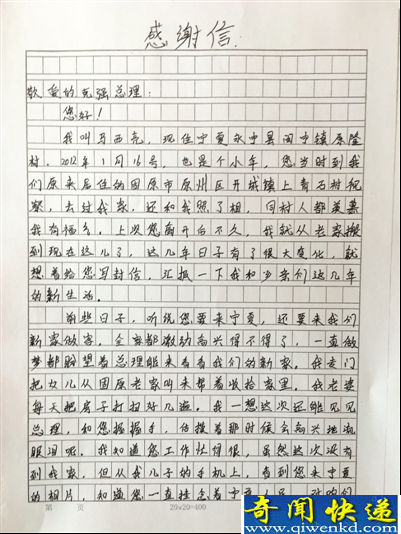 感谢信
敬爱的克强总理：
您好！
我叫马西亮，现住宁夏永宁县闽宁镇原隆
村。2012年1月16号，也是个小年，您当时到我
们原来居住的固原市原州区开城镇上青石村视
察，去过我家，还和我照了相，同村人都羡慕
我有福气。上次您离开后不久，我就从老家搬
到现在这儿了，这几年日子有了很大变化，就
想着给您写封信，汇报一下我和乡亲们这几年
的新生活。
前些日子，听说您要来宁夏，还要来我们
新家做客，全家都激动高兴得不得了，一直做
梦都盼望着总理能来看看我们的新家。我专门
把女儿从固原老家叫来帮着收拾家里。我老婆
每天把房子打扫好几遍。我一想这次还能见见
总理，和您握握手，估摸着那时候会高兴地流
眼泪呢。我知道您工作忙得很，虽然这次没有
到我家，但从我儿子的手机上，看到您来宁夏
的相片，知道您一直挂念着宁夏人民，对咱们
第 页 20×20=400
奇闻快递
www.qiwenkd.com